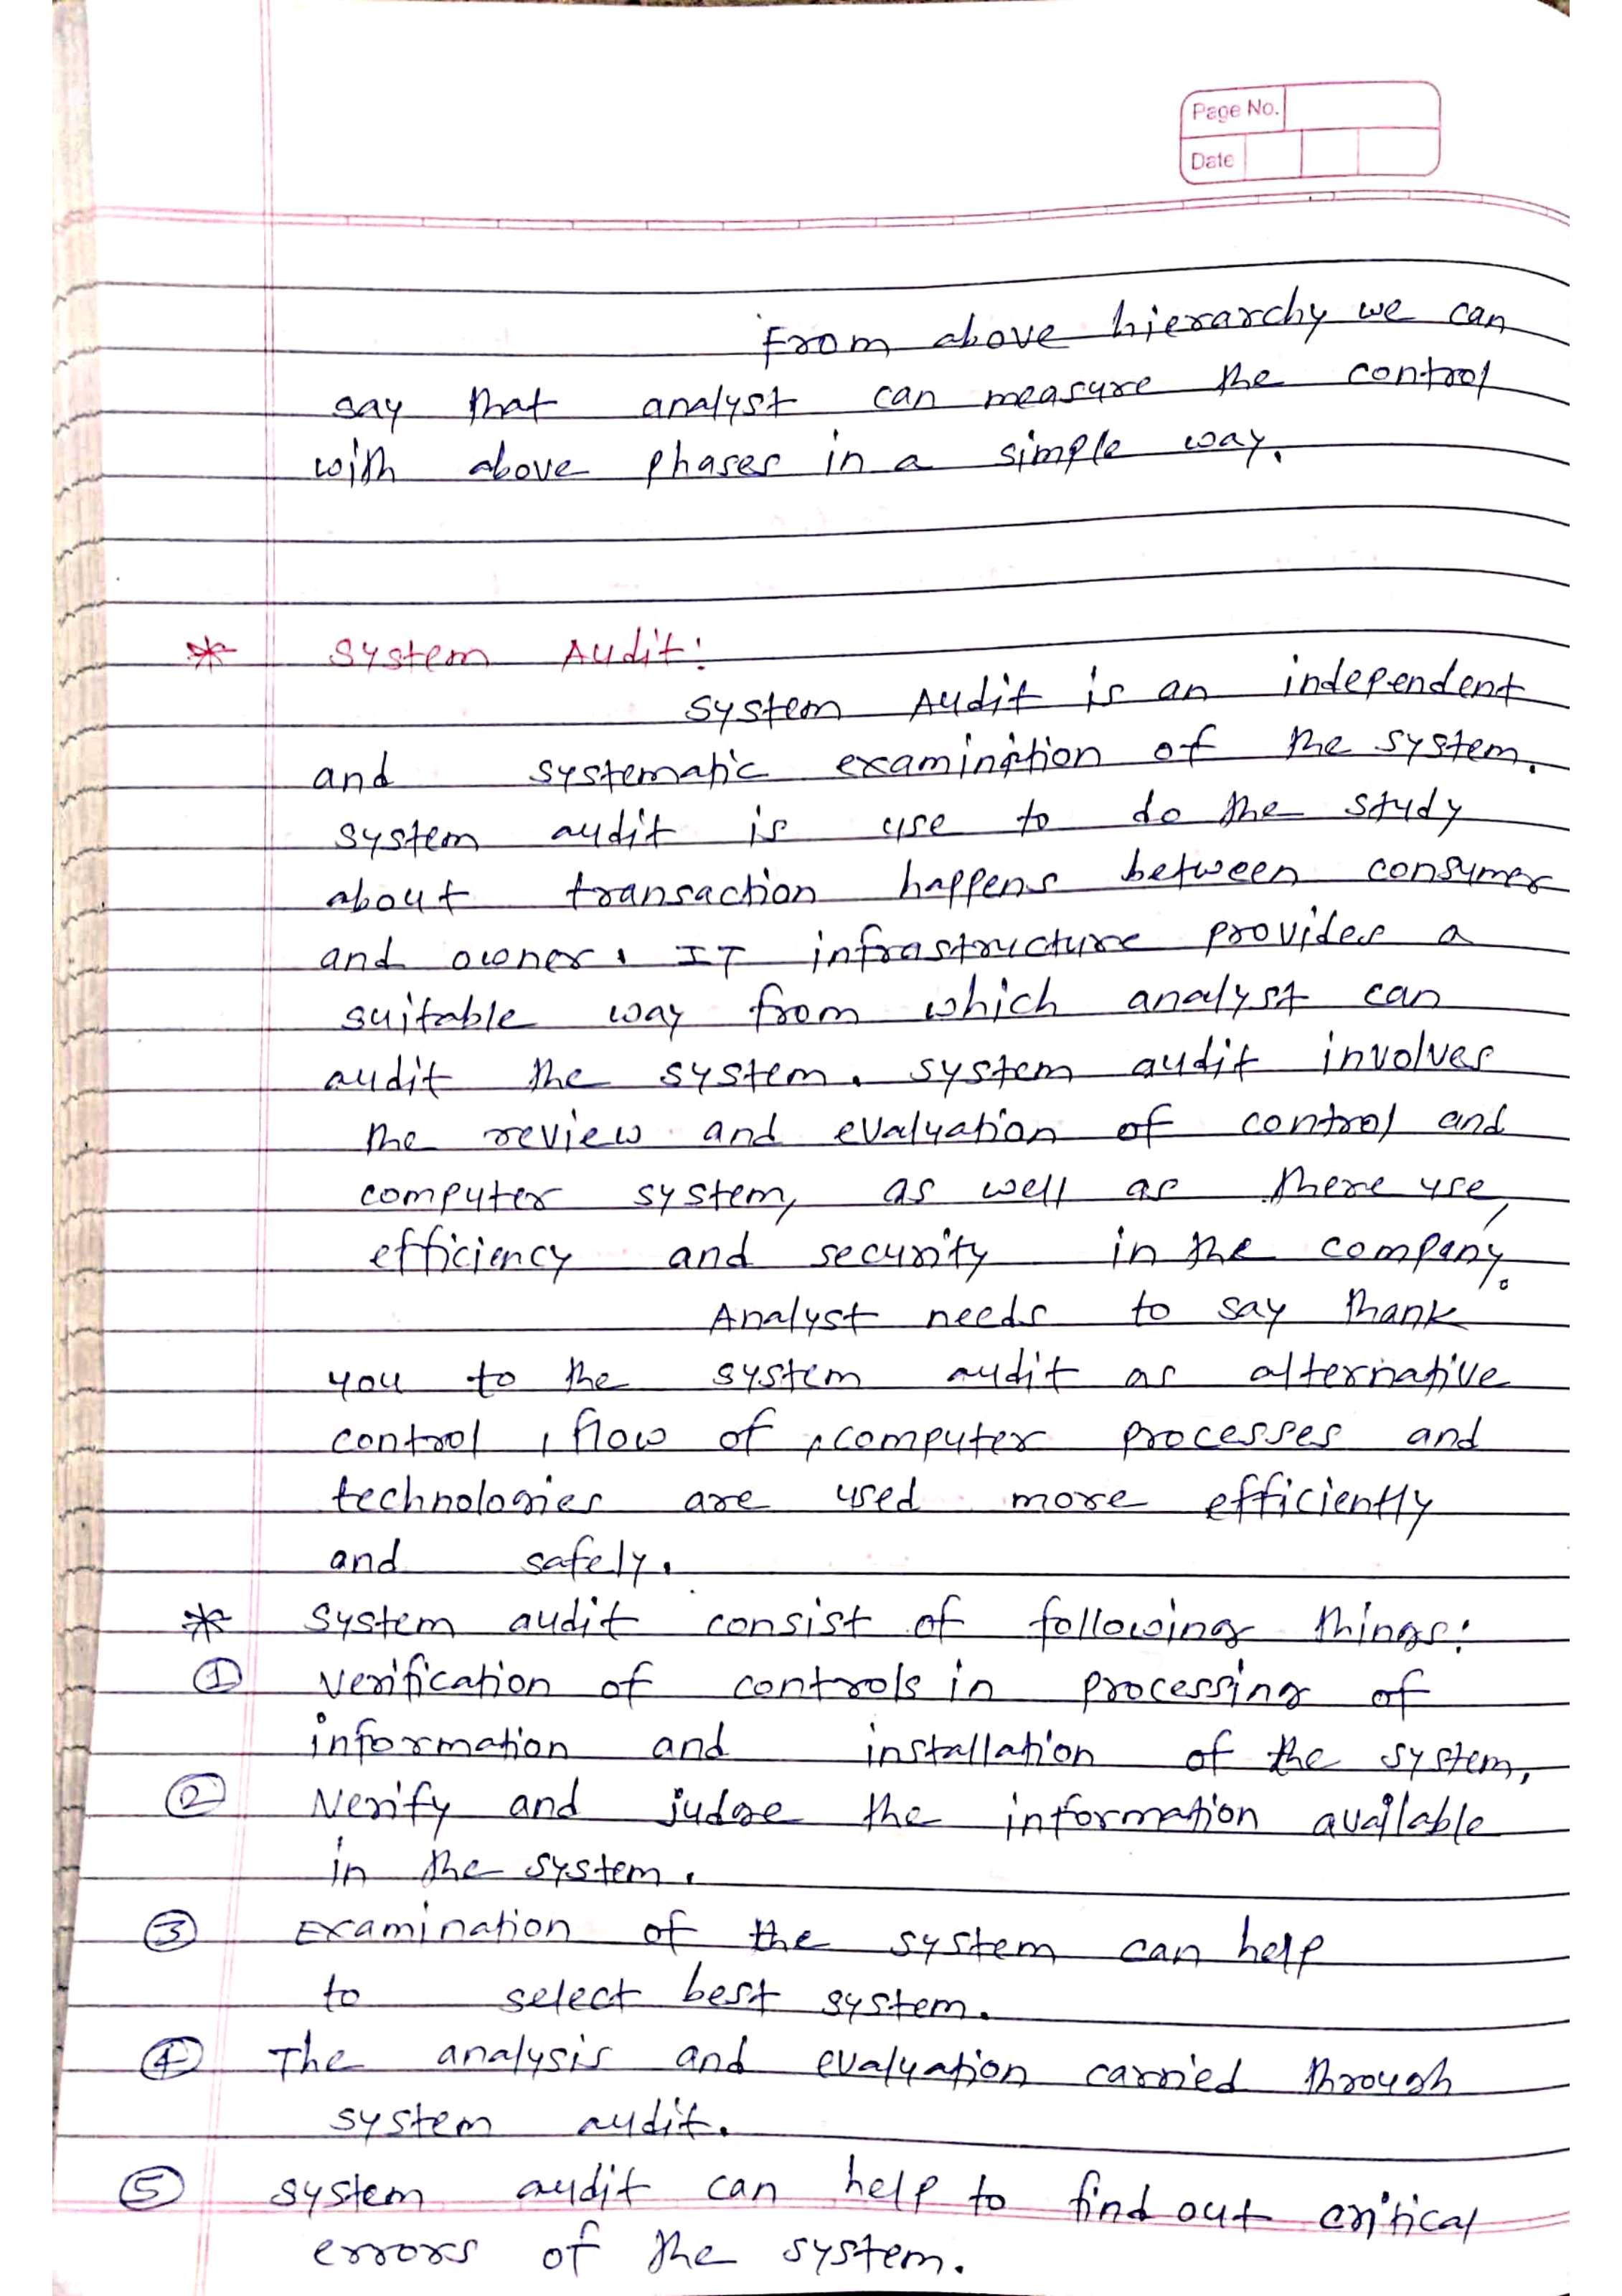 Page No.
Date
From above hierarchy we can
say that analyst can measure the control
with above phases in a simple way.
* System Audit:
System Audit is an independent
and systematic examination of the system.
system audit is use to do the study
about transaction happens between consumer
and owner. IT infrastructure provides a
suitable way from which analyst can
audit the system. system audit involves
the review and evaluation of control and
computer system, as well as there use,
efficiency and security in the company.
Analyst needs to say thank
you to the system audit as alternative
control, flow of computer processes and
technologies are used more efficiently
and safely.
* System audit consist of following things:
① Verification of controls in processing of
information and installation of the system,
② Verify and judge the information available
in the system.
③ Examination of the system can help
to select best system.
④ The analysis and evaluation carried through
system audit.
⑤ system audit can help to find out critical
errors of the system.